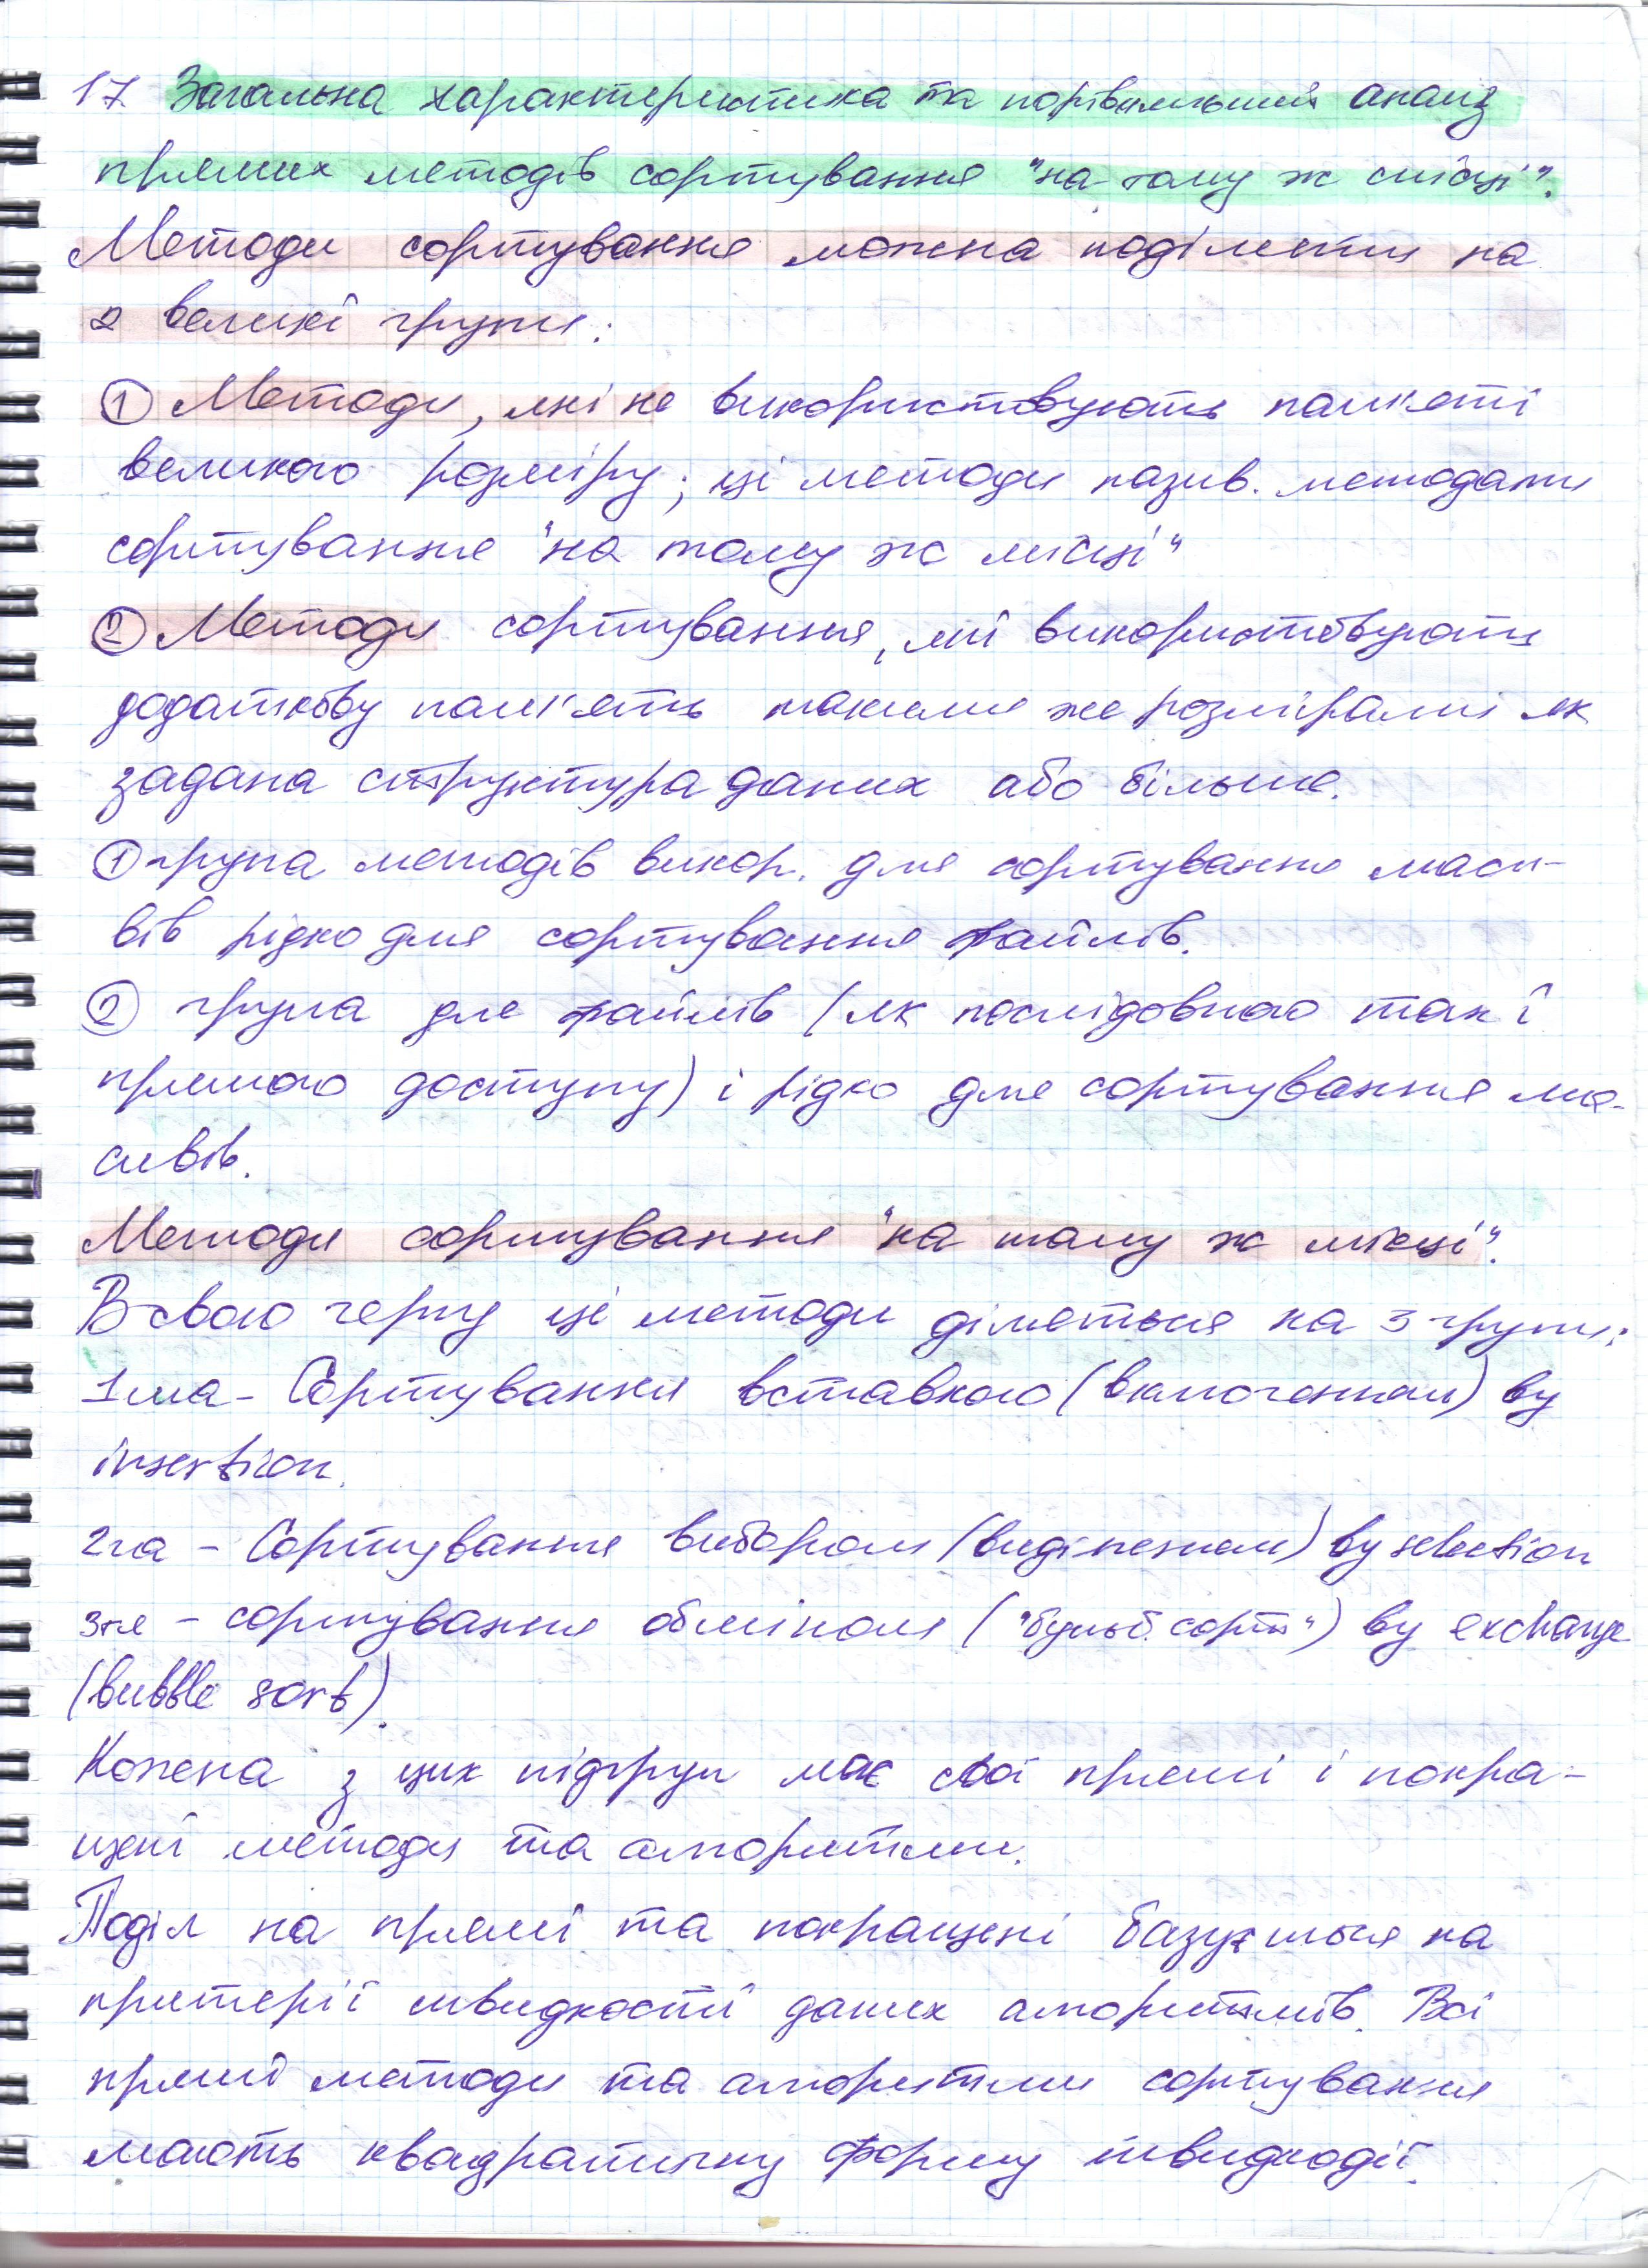 17. Загальна характеристика та порівняльний аналіз
прямих методів сортування "на тому ж місці".
Методи сортування можна поділити на
2 великі групи:
① Методи, які не використовують пам'яті
великого розміру; ці методи назив. методами
сортування "на тому ж місці"
② Методи сортування, які використовують
додаткову пам'ять такими же розмірами як
задана структура даних або більше.
① група методів викор. для сортування маси-
вів рідко для сортування файлів.
② група для файлів (як послідовного так і
прямого доступу) і рідко для сортування ма-
сивів.
Методи сортування "на тому ж місці".
В свою чергу ці методи діляться на 3 групи:
1ша - Сортування вставкою (включенням) by
insertion.
2га - Сортування вибором (виділенням) by selection
3тя - сортування обміном ("бульб. сорт") by exchange
(bubble sort).
Кожена з цих підгруп має свої прямі і покра-
щені методи та алгоритми.
Поділ на прямі та покращені базується на
критерії швидкості даних алгоритмів. Всі
прямі методи та алгоритми сортування
мають квадратичну форму швидкодії.